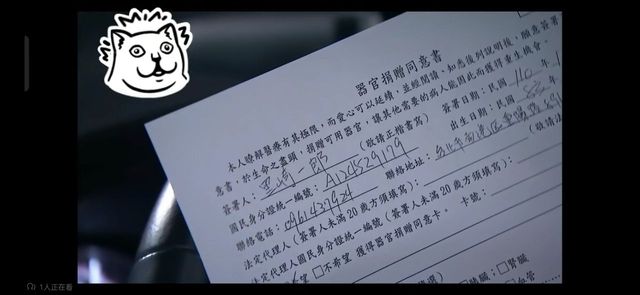 器官捐贈同意書
本人瞭解醫療有其極限，而愛心可以延續，並經閱讀、知悉後附說明後，願意簽署
意書，於生命之盡頭，捐贈可用器官，讓其他需要的病人能因此而獲得重生機會。
簽署人：黑崎一郎 (敬請正楷書寫) 簽署日期：民國 110 年
國民身分證統一編號：A124529179 出生日期：民國 82 年
聯絡電話：0961427924 聯絡地址：
法定代理人(簽署人未滿20歲方須填寫)： (敬請
法定代理人國民身分證統一編號(簽署人未滿20歲方須填寫)：
□不希望 獲得器官捐贈同意卡。 卡號：
肺臟；□腎臟
血管
1人正在看